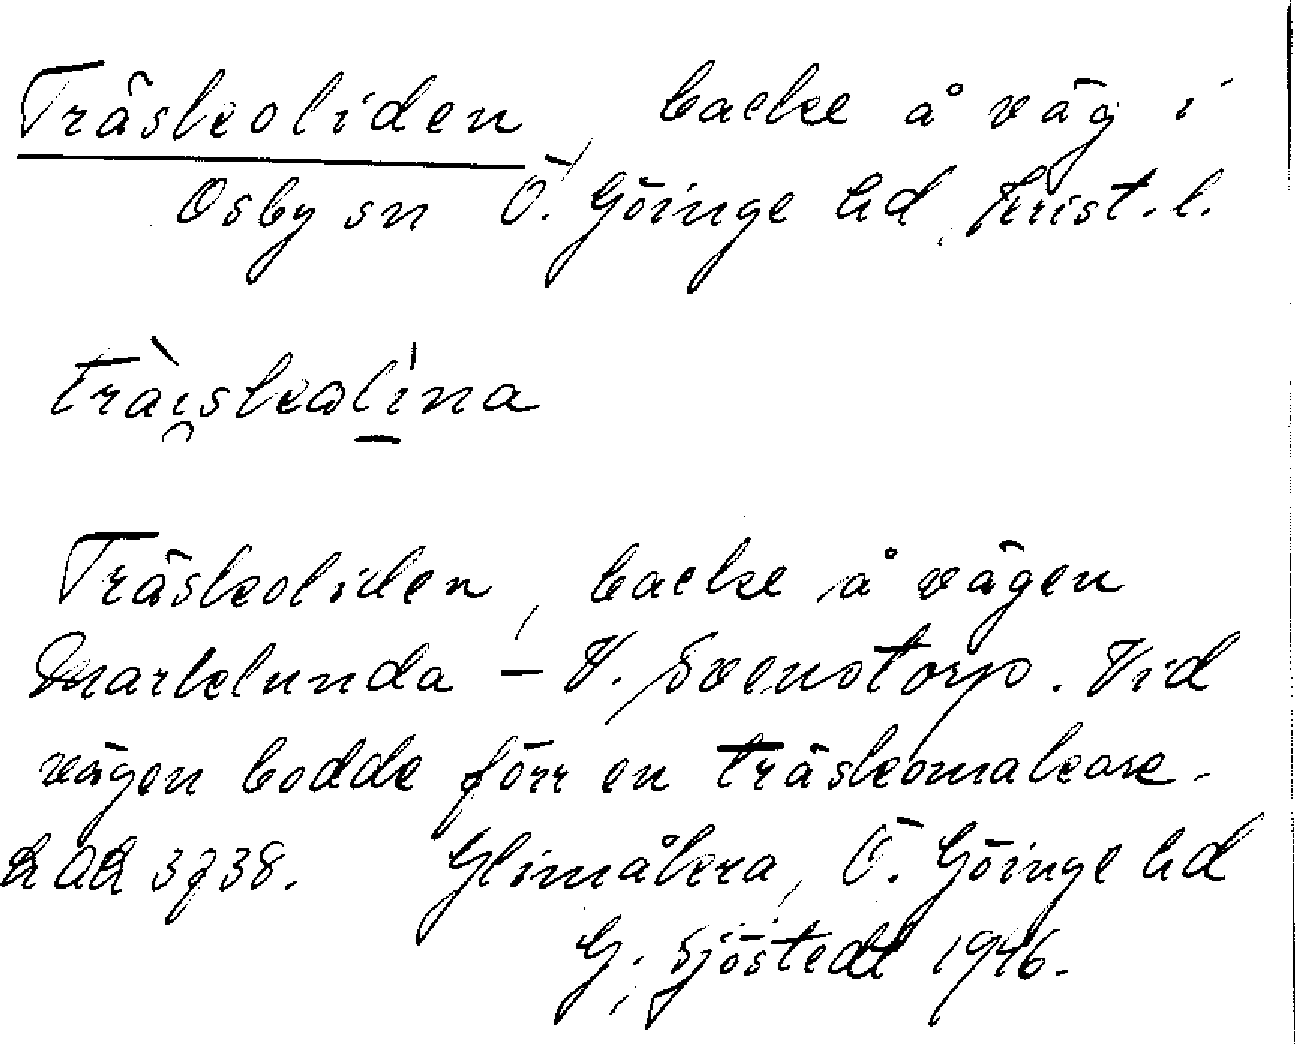 Träskoliden, backe å väg i
Osby sn Ö. Göinge hd, Krist. l.
Träskoliden, backe å vägen
Marklunda – V. Svenstorp. Vid
vägen bodde förr en träskomakare.
RAÄ 3738. Glimåkra, Ö. Göinge hd
G. Sjöstedt 1946.